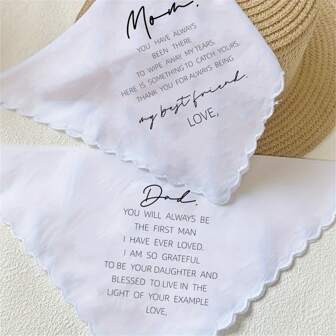 Mom,
YOU HAVE ALWAYS
BEEN THERE
TO WIPE AWAY MY TEARS.
HERE IS SOMETHING TO CATCH YOURS.
THANK YOU FOR ALWAYS BEING
my best friend.
LOVE,
Dad,
YOU WILL ALWAYS BE
THE FIRST MAN
I HAVE EVER LOVED.
I AM SO GRATEFUL
TO BE YOUR DAUGHTER AND
BLESSED TO LIVE IN THE
LIGHT OF YOUR EXAMPLE
LOVE,